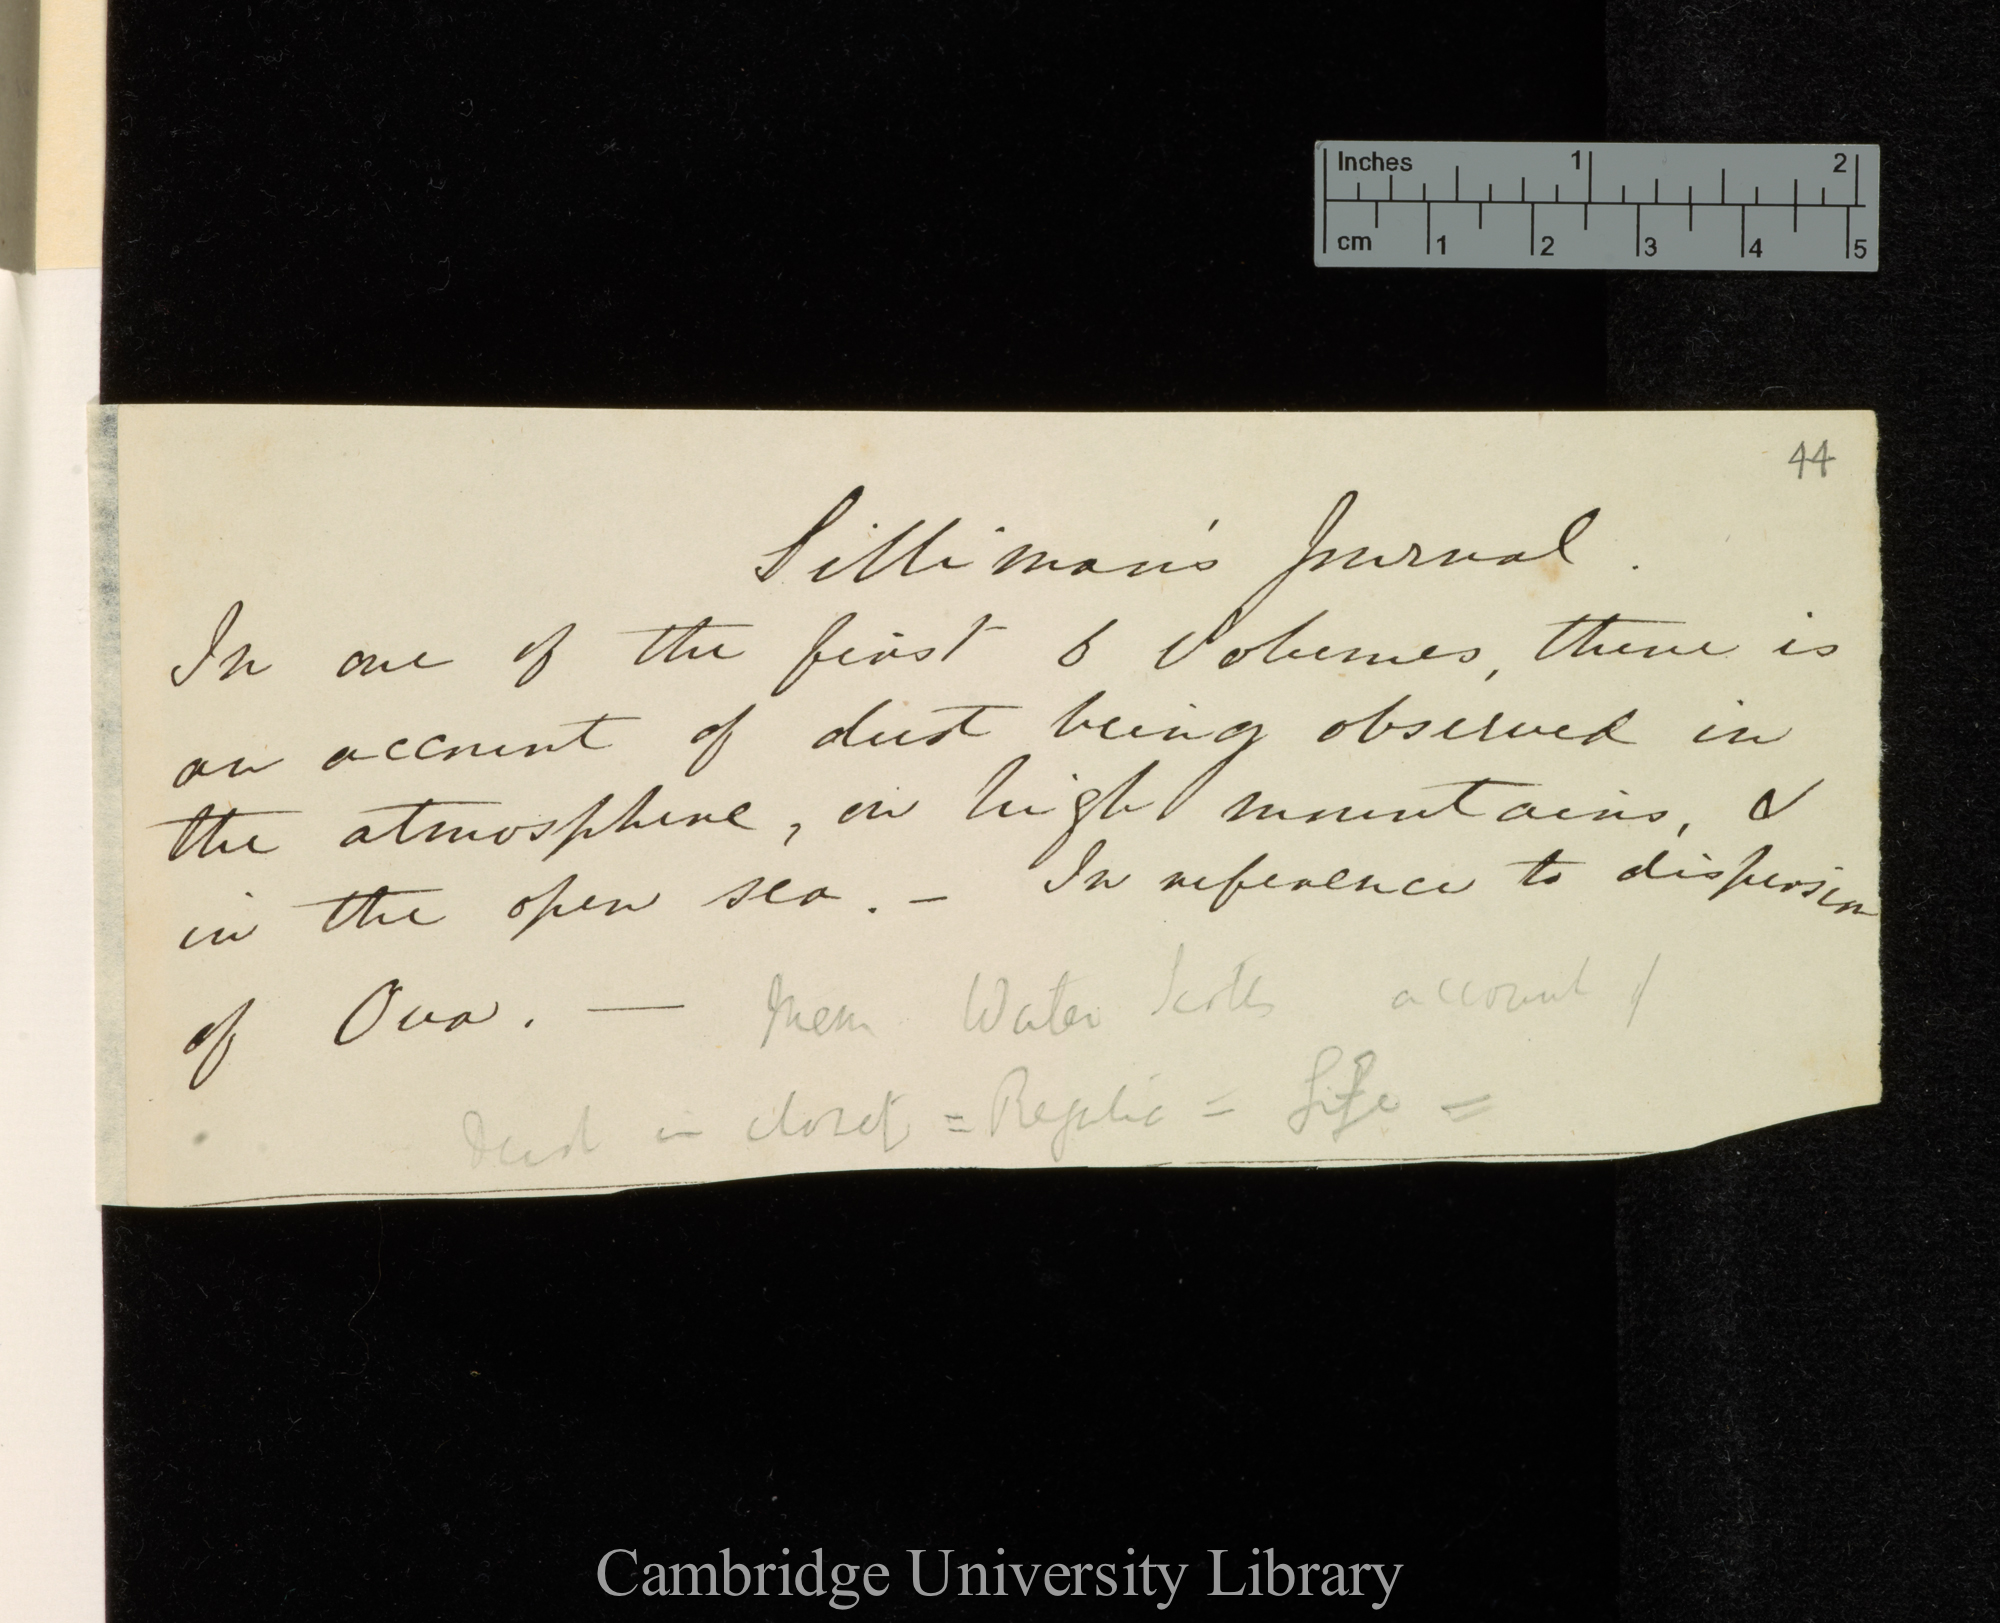 Inches 1 2
cm 1 2 3 4 5
44
Silliman's Journal.
In one of the first 6 Volumes, there is
an account of dust being observed in
the atmosphere, on high mountains, &
in the open sea. — In reference to dispersion
of Ova. — Mem Water Scotts account of
Dust in closet = = Life =
Cambridge University Library